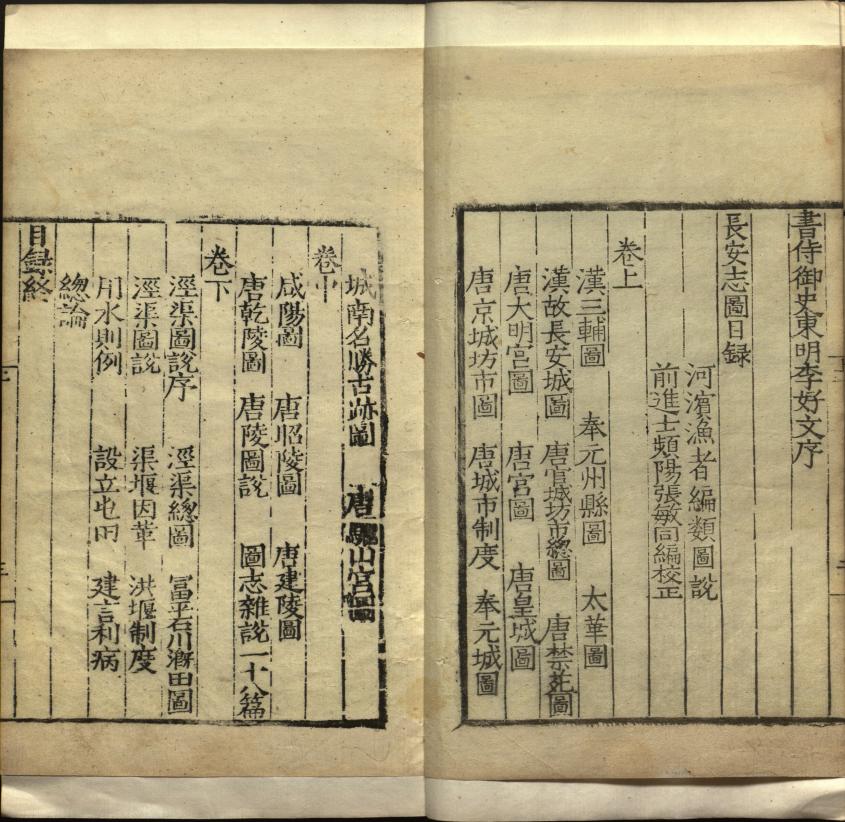 書侍御史東明李好文序
長安志圖目録
河濱漁者編類圖說
前進士頻陽張敏同編校正
卷上
漢三輔圖 奉元州縣圖 太華圖
漢故長安城圖 唐宫城坊市總圖 唐禁苑圖
唐大明宫圖 唐宫圖 唐皇城圖
唐京城坊市圖 唐城市制度 奉元城圖
城南名勝古跡圖 唐驪山宫圖
卷中
咸陽圖 唐昭陵圖 唐建陵圖
唐乾陵圖 唐陵圖說 圖志雜說一十八篇
卷下
涇渠圖說序 涇渠總圖 富平石川溉田圖
涇渠圖說 渠堰因革 洪堰制度
用水則例 設立屯田 建言利病
總論
目録終